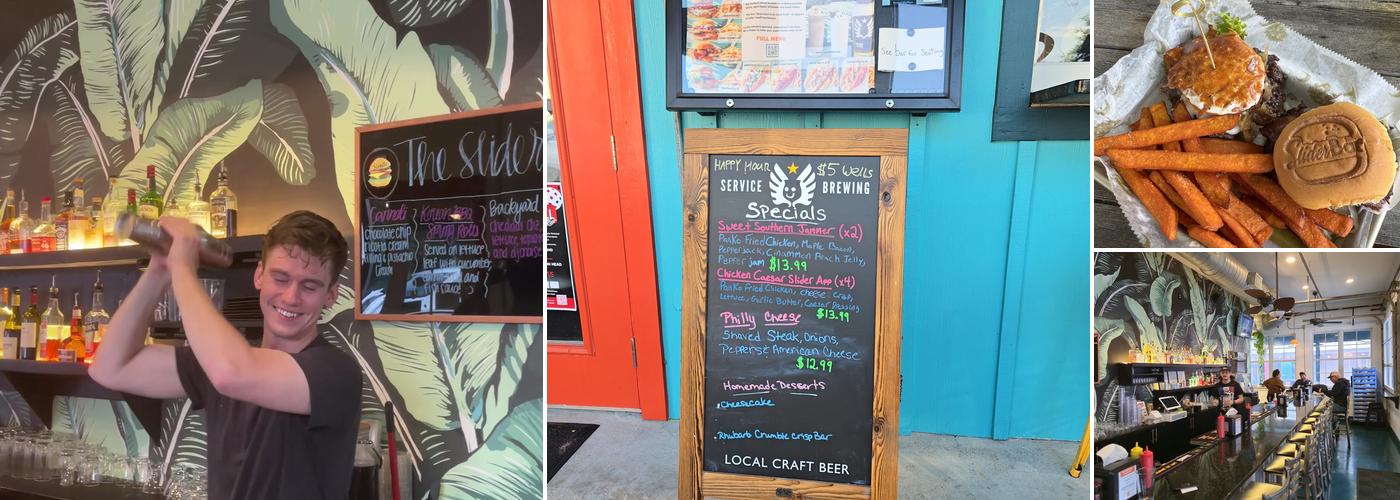 The Slider
Cannoli
chocolate chip
ricotta cream
filling & pistachio
Cream
Korean BBQ
Served on lettuce
leaf with cucumber
and
Fish sauce
Backyard
cheddar che
lettuce, tomato
FULL MENU
See Bar for Seating
HAPPY HOUR $5 Wells
SERVICE BREWING
Specials
Sweet Southern Jammer (x2)
Panko Fried Chicken, Maple Bacon,
Pepperjack, Cinnammon Peach Jelly,
Pepper jam $13.99
Chicken Caesar Slider App (x4)
Panko Fried Chicken, cheese crisp,
Lettuce, Garlic Butter, Caesar Dressing
$13.99
Philly Cheese
Shaved Steak, Onions,
Peppers & American Cheese
$12.99
Homemade Desserts
. Cheesecake
. Rhubarb Crumble crisp Bar
LOCAL CRAFT BEER
SliderBo